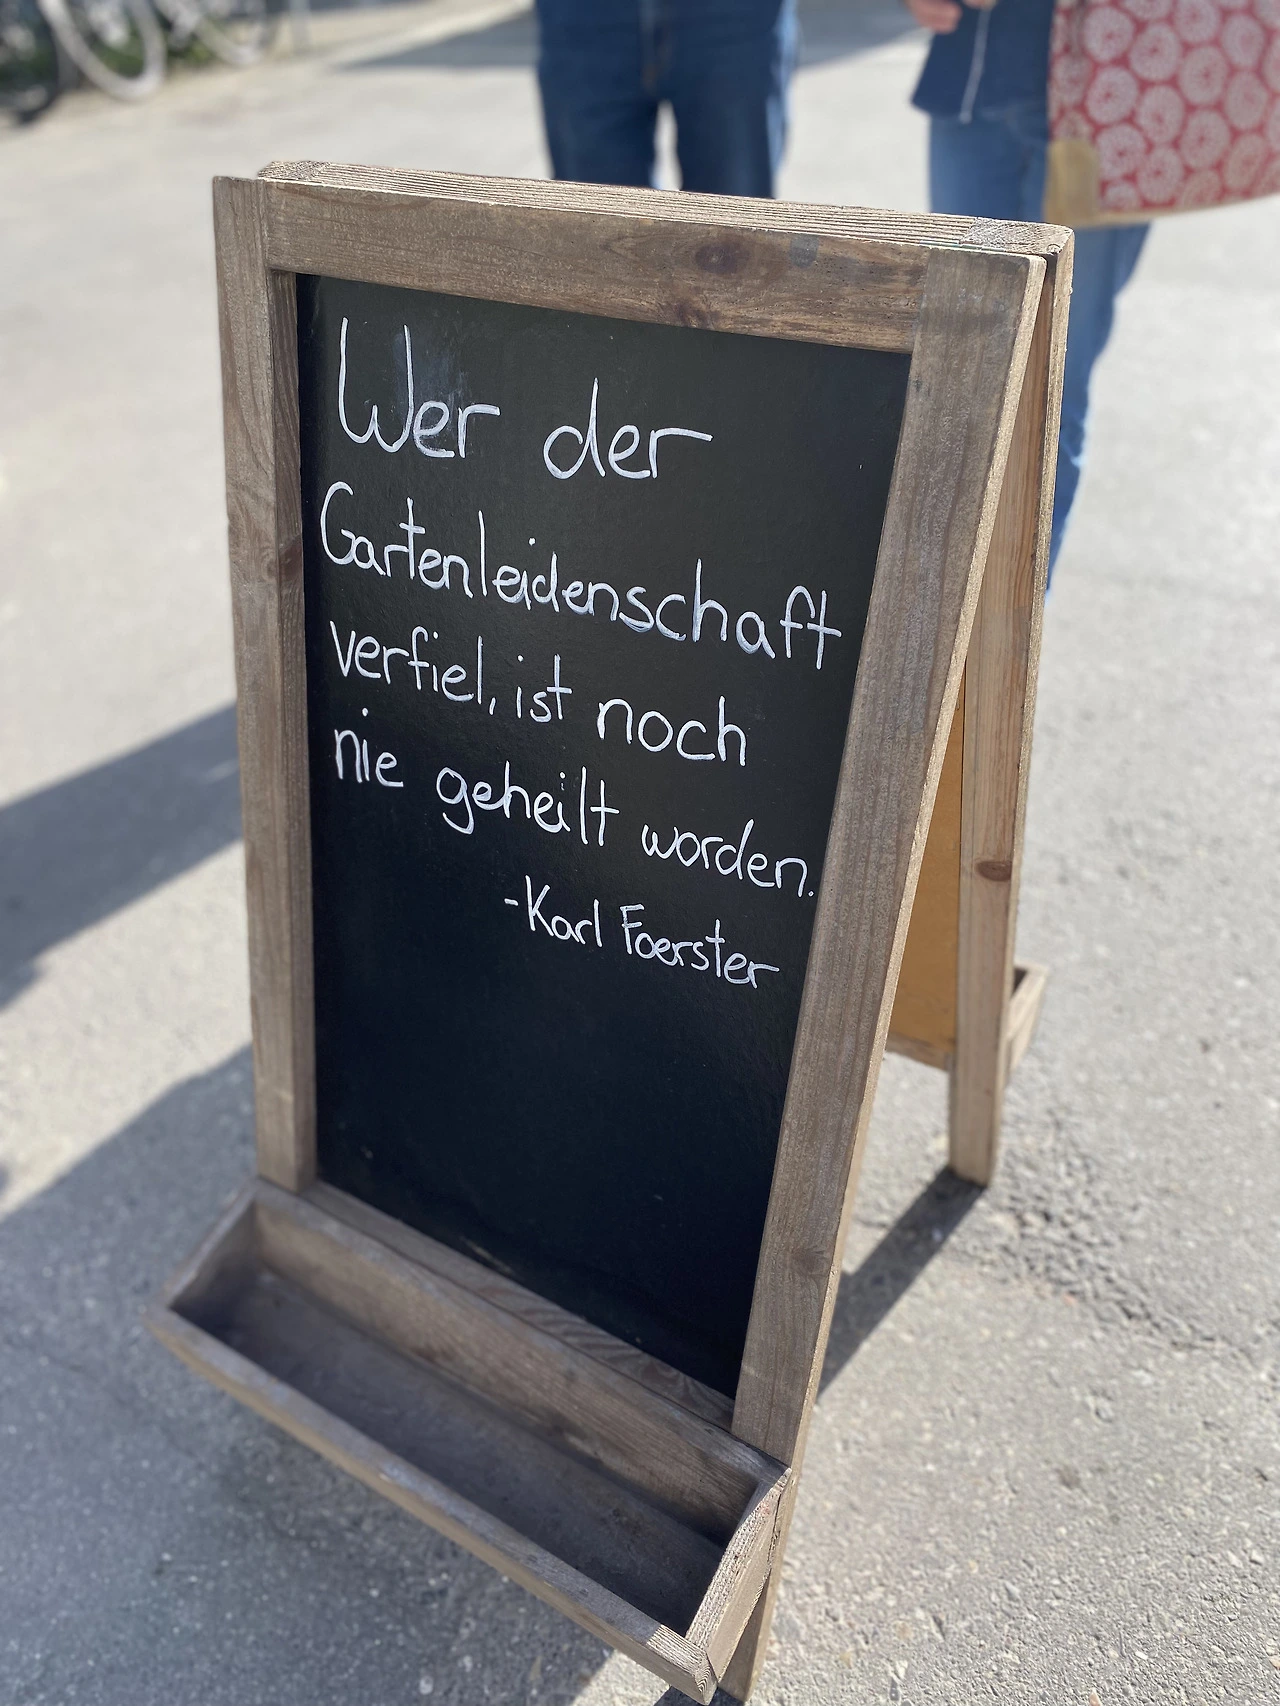 Wer der
Gartenleidenschaft
verfiel, ist noch
nie geheilt worden.
-Karl Foerster